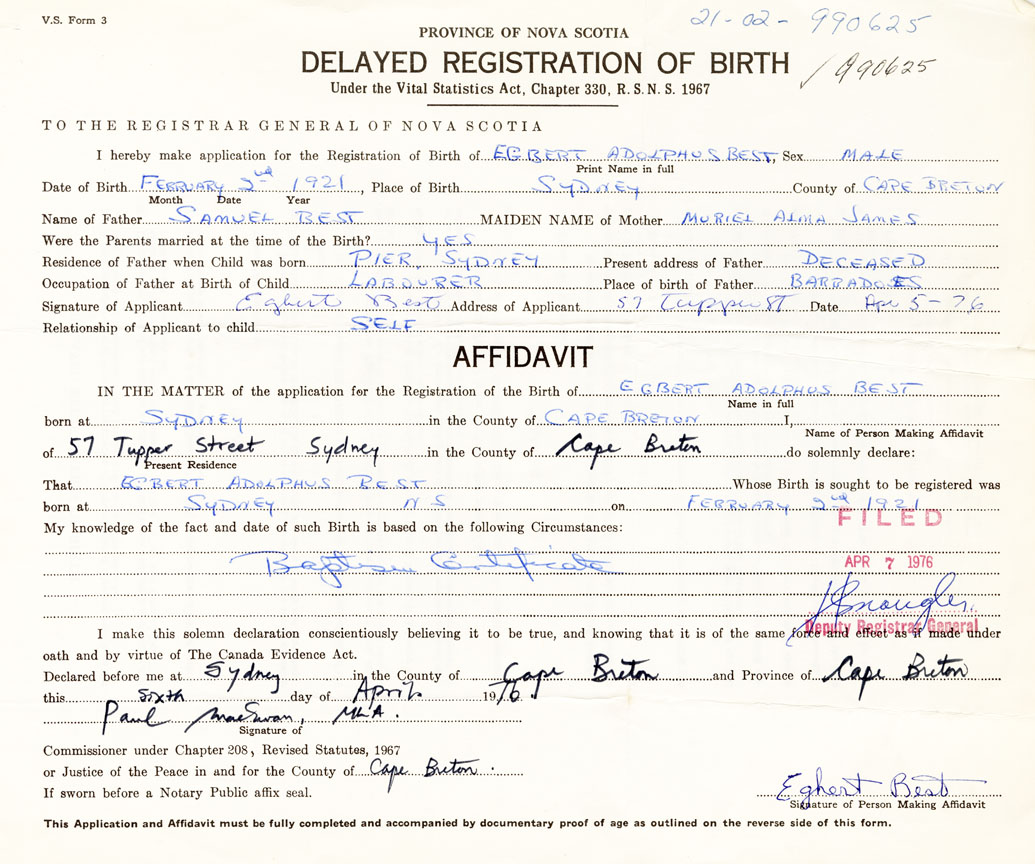 V.S. Form 3
21-02-990625
PROVINCE OF NOVA SCOTIA
DELAYED REGISTRATION OF BIRTH
/990625
Under the Vital Statistics Act, Chapter 330, R. S. N. S. 1967
TO THE REGISTRAR GENERAL OF NOVA SCOTIA
I hereby make application for the Registration of Birth of EGBERT ADOLPHUS BEST, Sex MALE
Print Name in full
Date of Birth FEBRUARY 2nd 1921, Place of Birth SYDNEY County of CAPE BRETON
Month Date Year
Name of Father SAMUEL BEST MAIDEN NAME of Mother MURIEL ALMA JAMES
Were the Parents married at the time of the Birth? YES
Residence of Father when Child was born PIER, SYDNEY Present address of Father DECEASED
Occupation of Father at Birth of Child LABOURER Place of birth of Father BARBADOES
Signature of Applicant Egbert Best Address of Applicant 57 Tupper St Date Apr 5-76
Relationship of Applicant to child SELF
AFFIDAVIT
IN THE MATTER of the application for the Registration of the Birth of EGBERT ADOLPHUS BEST
Name in full
born at SYDNEY in the County of CAPE BRETON I,
Name of Person Making Affidavit
of 57 Tupper Street Sydney in the County of Cape Breton do solemnly declare:
Present Residence
That EGBERT ADOLPHUS BEST Whose Birth is sought to be registered was
born at SYDNEY NS on FEBRUARY 2nd 1921
FILED
My knowledge of the fact and date of such Birth is based on the following Circumstances:
Baptism Certificate
APR 7 1976
Deputy Registrar General
I make this solemn declaration conscientiously believing it to be true, and knowing that it is of the same force and effect as if made under
oath and by virtue of The Canada Evidence Act.
Declared before me at Sydney in the County of Cape Breton and Province of Cape Breton
this Sixth day of April 1976.
Paul MacEwan, MLA.
Signature of
Commissioner under Chapter 208, Revised Statutes, 1967
or Justice of the Peace in and for the County of Cape Breton.
If sworn before a Notary Public affix seal.
Egbert Best
Signature of Person Making Affidavit
This Application and Affidavit must be fully completed and accompanied by documentary proof of age as outlined on the reverse side of this form.